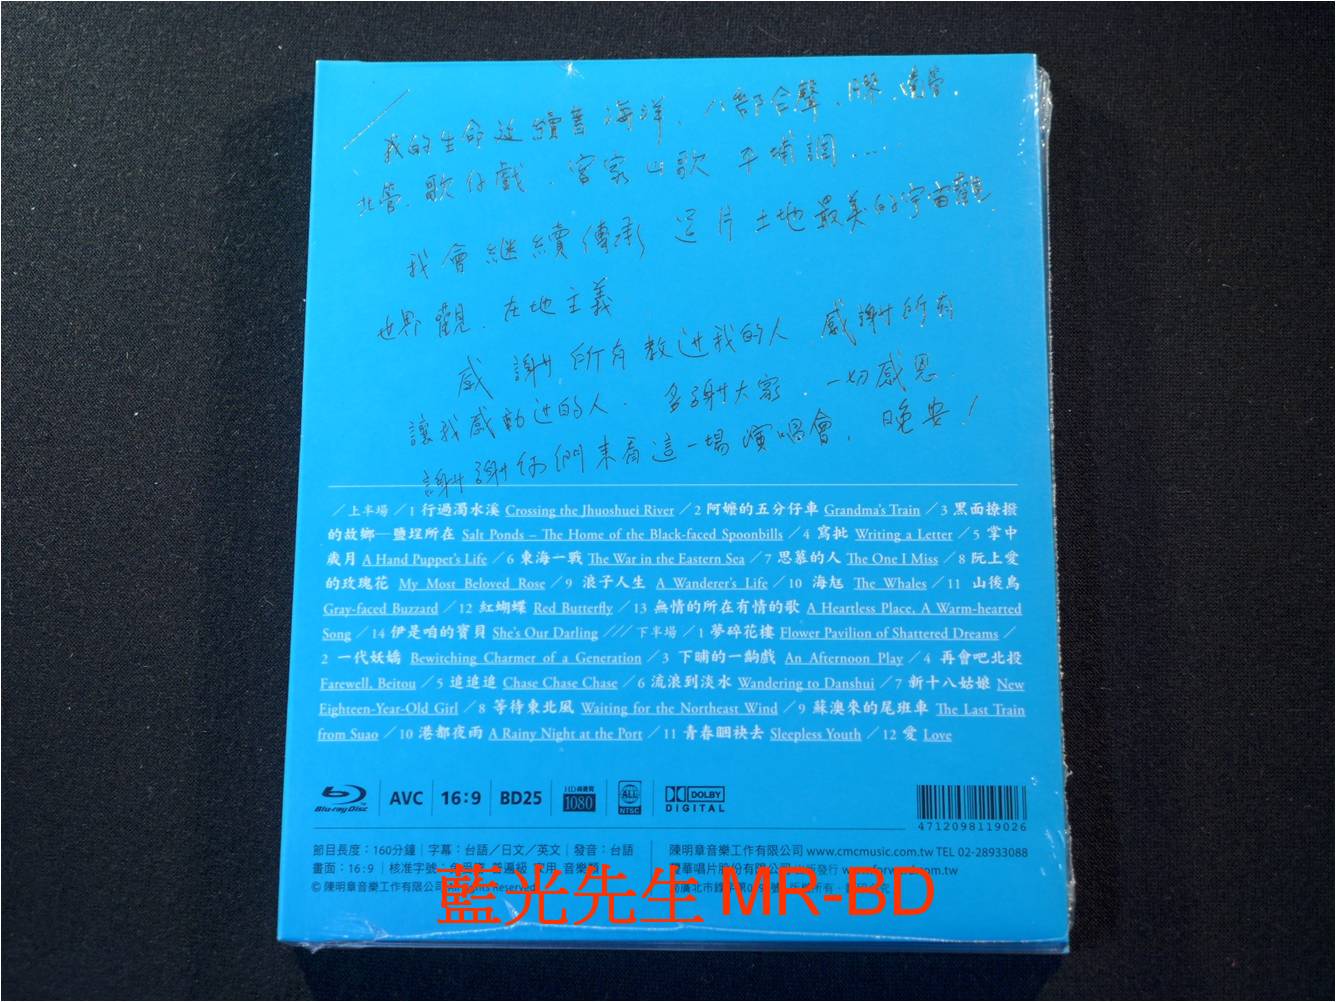 我的生命延續著海洋、八部合聲、
北管、歌仔戲、客家山歌 平埔調……
我會繼續傳承 這片土地最美的宇宙觀
世界觀、在地主義
感謝所有教過我的人 感謝所有
讓我感動過的人、多謝大家、一切感恩
謝謝你們來看這一場演唱會、晚安！
／上半場／1 行過濁水溪 Crossing the Jhuoshuei River／2 阿嬤的五分仔車 Grandma's Train／3 黑面撩撥
的故鄉—鹽埕所在 Salt Ponds – The Home of the Black-faced Spoonbills／4 寫批 Writing a Letter／5 掌中
歲月 A Hand Puppet's Life／6 東海一戰 The War in the Eastern Sea／7 思慕的人 The One I Miss／8 阮上愛
的玫瑰花 My Most Beloved Rose／9 浪子人生 A Wanderer's Life／10 海尪 The Whales／11 山後鳥
Gray-faced Buzzard／12 紅蝴蝶 Red Butterfly／13 無情的所在有情的歌 A Heartless Place, A Warm-hearted
Song／14 伊是咱的寶貝 She's Our Darling ///下半場／1 夢碎花樓 Flower Pavilion of Shattered Dreams／
2 一代妖嬌 Bewitching Charmer of a Generation／3 下晡的一齣戲 An Afternoon Play／4 再會吧北投
Farewell, Beitou／5 追追追 Chase Chase Chase／6 流浪到淡水 Wandering to Danshui／7 新十八姑娘 New
Eighteen-Year-Old Girl／8 等待東北風 Waiting for the Northeast Wind／9 蘇澳來的尾班車 The Last Train
from Suao／10 港都夜雨 A Rainy Night at the Port／11 青春睏袂去 Sleepless Youth／12 愛 Love
Blu-ray Disc AVC 16:9 BD25 HD 1080 ALL NTSC DOLBY DIGITAL
4712098119026
節目長度：160分鐘｜字幕：台語／日文／英文｜發音：台語
畫面：16:9｜核准字號：普遍級 家用 音樂類
© 陳明章音樂工作有限公司 All Rights Reserved
陳明章音樂工作有限公司 www.cmcmusic.com.tw TEL 02-28933088
唱片股份有限公司 發行
藍光先生 MR-BD